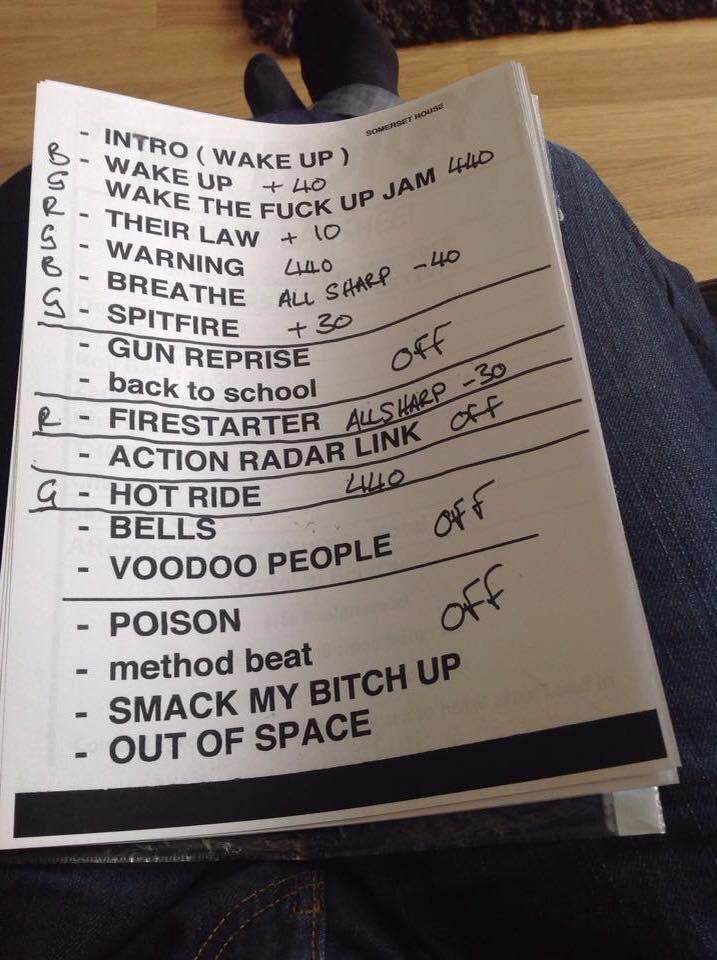 SOMERSET HOUSE
- INTRO ( WAKE UP )
B - WAKE UP +40
G WAKE THE FUCK UP JAM 440
R - THEIR LAW + 10
G - WARNING 440
B - BREATHE ALL SHARP -40
G - SPITFIRE +30
- GUN REPRISE OFF
- back to school
R - FIRESTARTER ALL SHARP -30
- ACTION RADAR LINK OFF
G - HOT RIDE 440
- BELLS OFF
- VOODOO PEOPLE
- POISON OFF
- method beat
- SMACK MY BITCH UP
- OUT OF SPACE